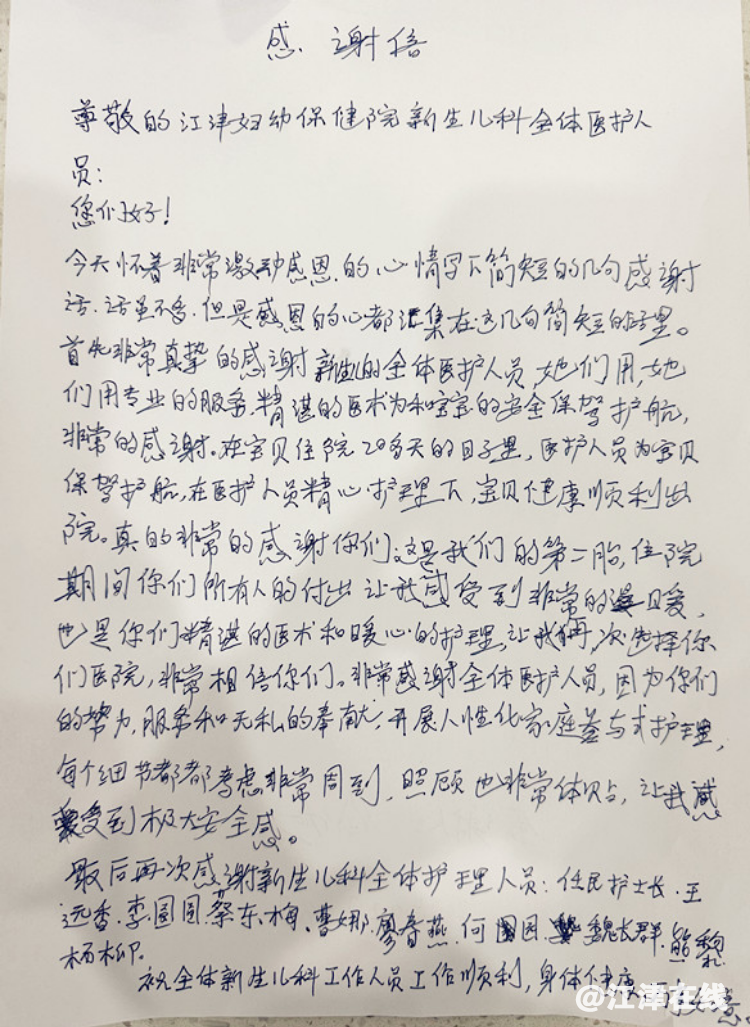 感谢信
尊敬的江津妇幼保健院新生儿科全体医护人
员：
您们好！
今天怀着非常激动感恩的心情写下简短的几句感谢
话.话虽不多.但是感恩的心都汇集在这几句简短的话里。
首先非常真挚的感谢新生儿的全体医护人员,她们用,她
们用专业的服务,精湛的医术为和宝宝的安全保驾护航,
非常的感谢.在宝贝住院20多天的日子里,医护人员为宝贝
保驾护航,在医护人员精心护理下,宝贝健康顺利出
院。真的非常的感谢你们,这是我们的第二胎,住院
期间你们所有人的付出让我感受到非常的温暖,
也是你们精湛的医术和暖心的护理,让我再次选择你
们医院,非常相信你们。非常感谢全体医护人员,因为你们
的努力,服务和无私的奉献,开展人性化家庭参与式护理,
每个细节都都考虑非常周到,照顾也非常体贴,让我感
受到极大安全感。
最后再次感谢新生儿科全体护理人员：任民护士长.王
远香.李圆圆.蔡东梅.曹娜.廖春燕.何园.魏长群.熊黎.
杨柳.
祝全体新生儿科工作人员工作顺利,身体健康
@江津在线